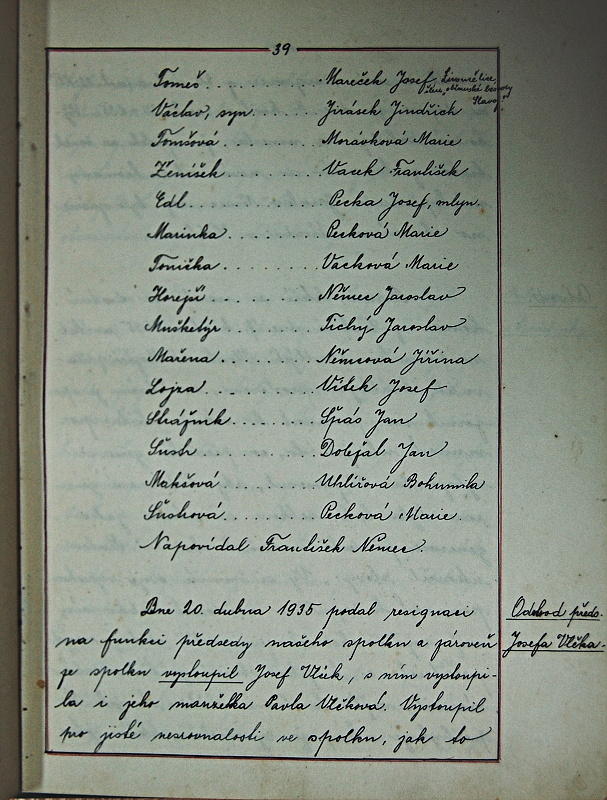 39
Tomeš . . . . . Mareček Josef,
Václav, syn . . . . . Jirásek Jindřich
Tomšová . . . . . Morávková Marie
Ženíšek . . . . . Vacek František
Edl . . . . . Pecka Josef, mlyn.
Marinka . . . . . Pecková Marie
Tonička . . . . . Vacková Marie
Horejší . . . . . Němec Jaroslav
Mušketýr . . . . . Tichý Jaroslav
Mařena . . . . . Němcová Jiřina
Lojza . . . . . Vítek Josef
Strážník . . . . . Špás Jan
Šusth . . . . . Dolejšal Jan
Makšová . . . . . Uhlířová Bohumila
Šusthová . . . . . Pecková Marie.
Napovídal František Němec.
Dne 20. dubna 1935 podal resignaci
na funkci předsedy našeho spolku a zároveň
ze spolku vystoupil Josef Vlček, s ním vystoupi-
la i jeho manželka Pavla Vlčková. Vystoupil
pro jisté nesrovnalosti ve spolku, jak to
Odchod předs.
Josefa Vlčka.